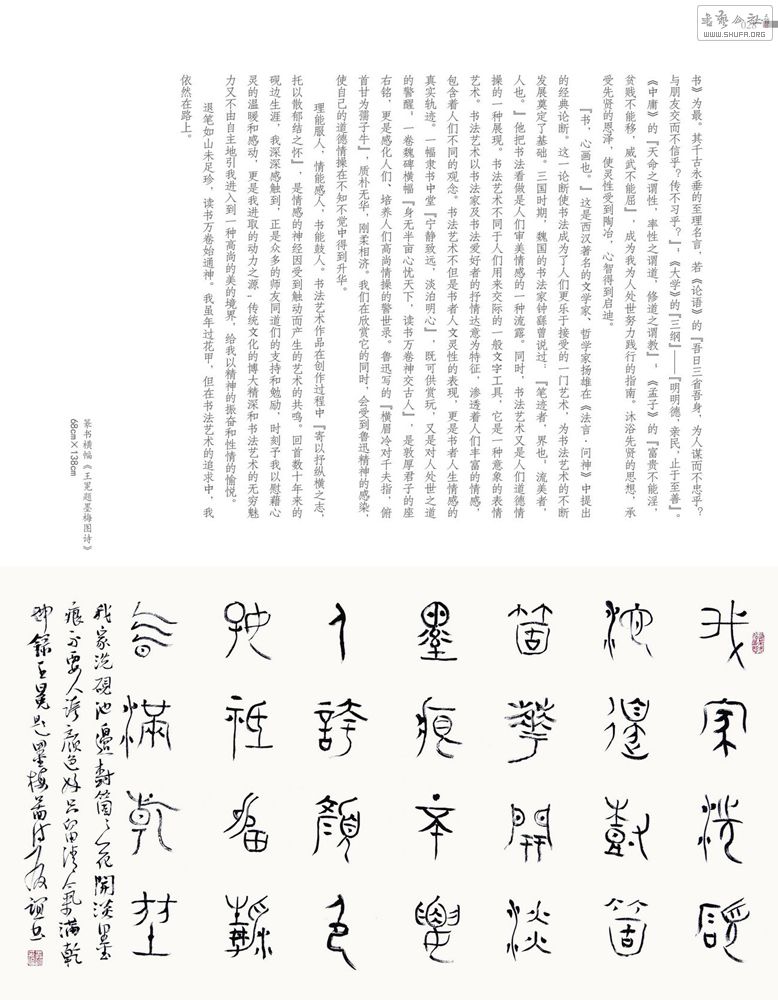 書藝公社
WWW.SHUFA.ORG
026
书》为最。其千古永垂的至理名言，若《论语》的『吾日三省吾身，为人谋而不忠乎？
与朋友交而不信乎？传不习乎？』，《大学》的『三纲』——『明明德，亲民，止于至善』。
《中庸》的『天命之谓性，率性之谓道，修道之谓教』，《孟子》的『富贵不能淫，
贫贱不能移，威武不能屈』，成为我为人处世努力践行的指南。沐浴先贤的思想，承
受先贤的恩泽，使灵性受到陶冶，心智得到启迪。
『书，心画也。』这是西汉著名的文学家、哲学家扬雄在《法言·问神》中提出
的经典论断。这一论断使书法成为了人们更乐于接受的一门艺术，为书法艺术的不断
发展奠定了基础。三国时期，魏国的书法家钟繇曾说过：『笔迹者，界也。流美者，
人也。』他把书法看做是人们审美情感的一种流露。同时，书法艺术又是人们道德情
操的一种展现。书法艺术不同于人们用来交际的一般文字工具，它是一种意象的表情
艺术。书法艺术以书法家及书法爱好者的抒情达意为特征，渗透着人们丰富的情感，
包含着人们不同的观念。书法艺术不但是书者人文灵性的表现，更是书者人生情感的
真实轨迹。一幅隶书中堂『宁静致远，淡泊明心』，既可供赏玩，又是对人处世之道
的警醒，一卷魏碑横幅『身无半亩心忧天下，读书万卷神交古人』，是敦厚君子的座
右铭，更是感化人们、培养人们高尚情操的警世录。鲁迅写的『横眉冷对千夫指，俯
首甘为孺子牛』，质朴无华，刚柔相济。我们在欣赏它的同时，会受到鲁迅精神的感染，
使自己的道德情操在不知不觉中得到升华。
理能服人，情能感人，书能鼓人。书法艺术作品在创作过程中『寄以抒纵横之志，
托以散郁结之怀』，是情感的神经因受到触动而产生的艺术的共鸣。回首数十年来的
砚边生涯，我深深感触到，正是众多的师友同道们的支持和勉励，时刻予我以慰藉心
灵的温暖和感动，更是我进取的动力之源；传统文化的博大精深和书法艺术的无穷魅
力又不由自主地引我进入到一种高尚的美的境界，给我以精神的振奋和性情的愉悦。
退笔如山未足珍，读书万卷始通神。我虽年过花甲，但在书法艺术的追求中，我
依然在路上。
篆书横幅《王冕题墨梅图诗》
68cm×138cm
我家洗硯
池邊樹箇
箇華開淡
墨痕不要
人誇顏色
好祇留清
气滿乾坤
我家洗硯池邊樹箇々花開淡墨
痕不要人誇顏色好只留清氣滿乾
坤錄王冕題墨梅圖詩